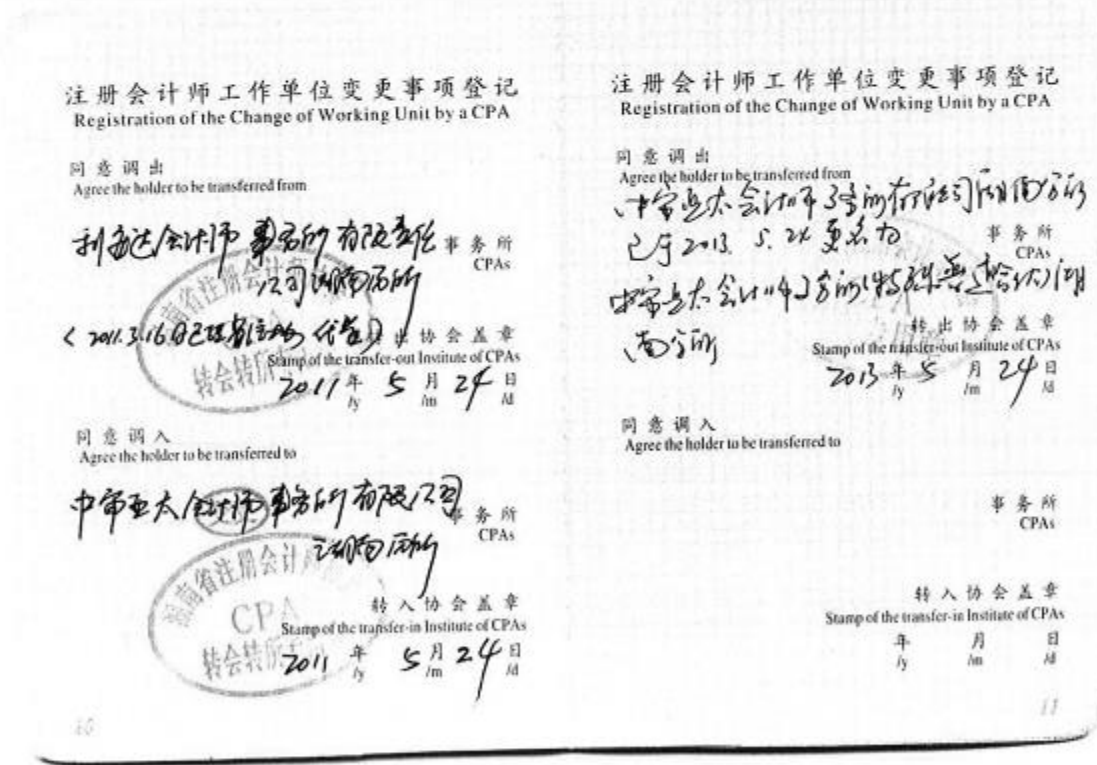 注册会计师工作单位变更事项登记
Registration of the Change of Working Unit by a CPA
同意调出
Agree the holder to be transferred from
利安达会计师事务所有限责任 事务所
CPAs
公司湖南分所
湖南省注册会计师
转会转所
转出协会盖章
Stamp of the transfer-out Institute of CPAs
2011 年 5 月 24 日
/y /m /d
同意调入
Agree the holder to be transferred to
中审亚太会计师事务所有限公司 事务所
CPAs
湖南分所
湖南省注册会计师
CPA
转会转所
转入协会盖章
Stamp of the transfer-in Institute of CPAs
2011 年 5 月 24 日
/y /m /d
10
注册会计师工作单位变更事项登记
Registration of the Change of Working Unit by a CPA
同意调出
Agree the holder to be transferred from
中审亚太会计师事务所有限公司湖南分所
已于2013. 5. 24 更名为 事务所
CPAs
中审亚太会计师事务所(特殊普通合伙)湖
南分所
转出协会盖章
Stamp of the transfer-out Institute of CPAs
2013 年 5 月 24 日
/y /m /d
同意调入
Agree the holder to be transferred to
事务所
CPAs
转入协会盖章
Stamp of the transfer-in Institute of CPAs
年 月 日
/y /m /d
11